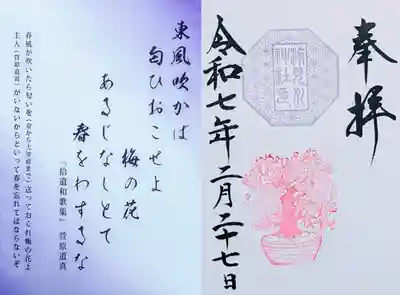 奉拝
令和七年二月二十七日
東風吹かは
匂ひおこせよ
梅の花
あるじなしとて
春をわするな
『拾遺和歌集』 菅原道真
春風が吹いたら匂いを(京から太宰府まで)送っておくれ梅の花よ
主人(菅原道真)がいないからといって春を忘れてはならないぞ